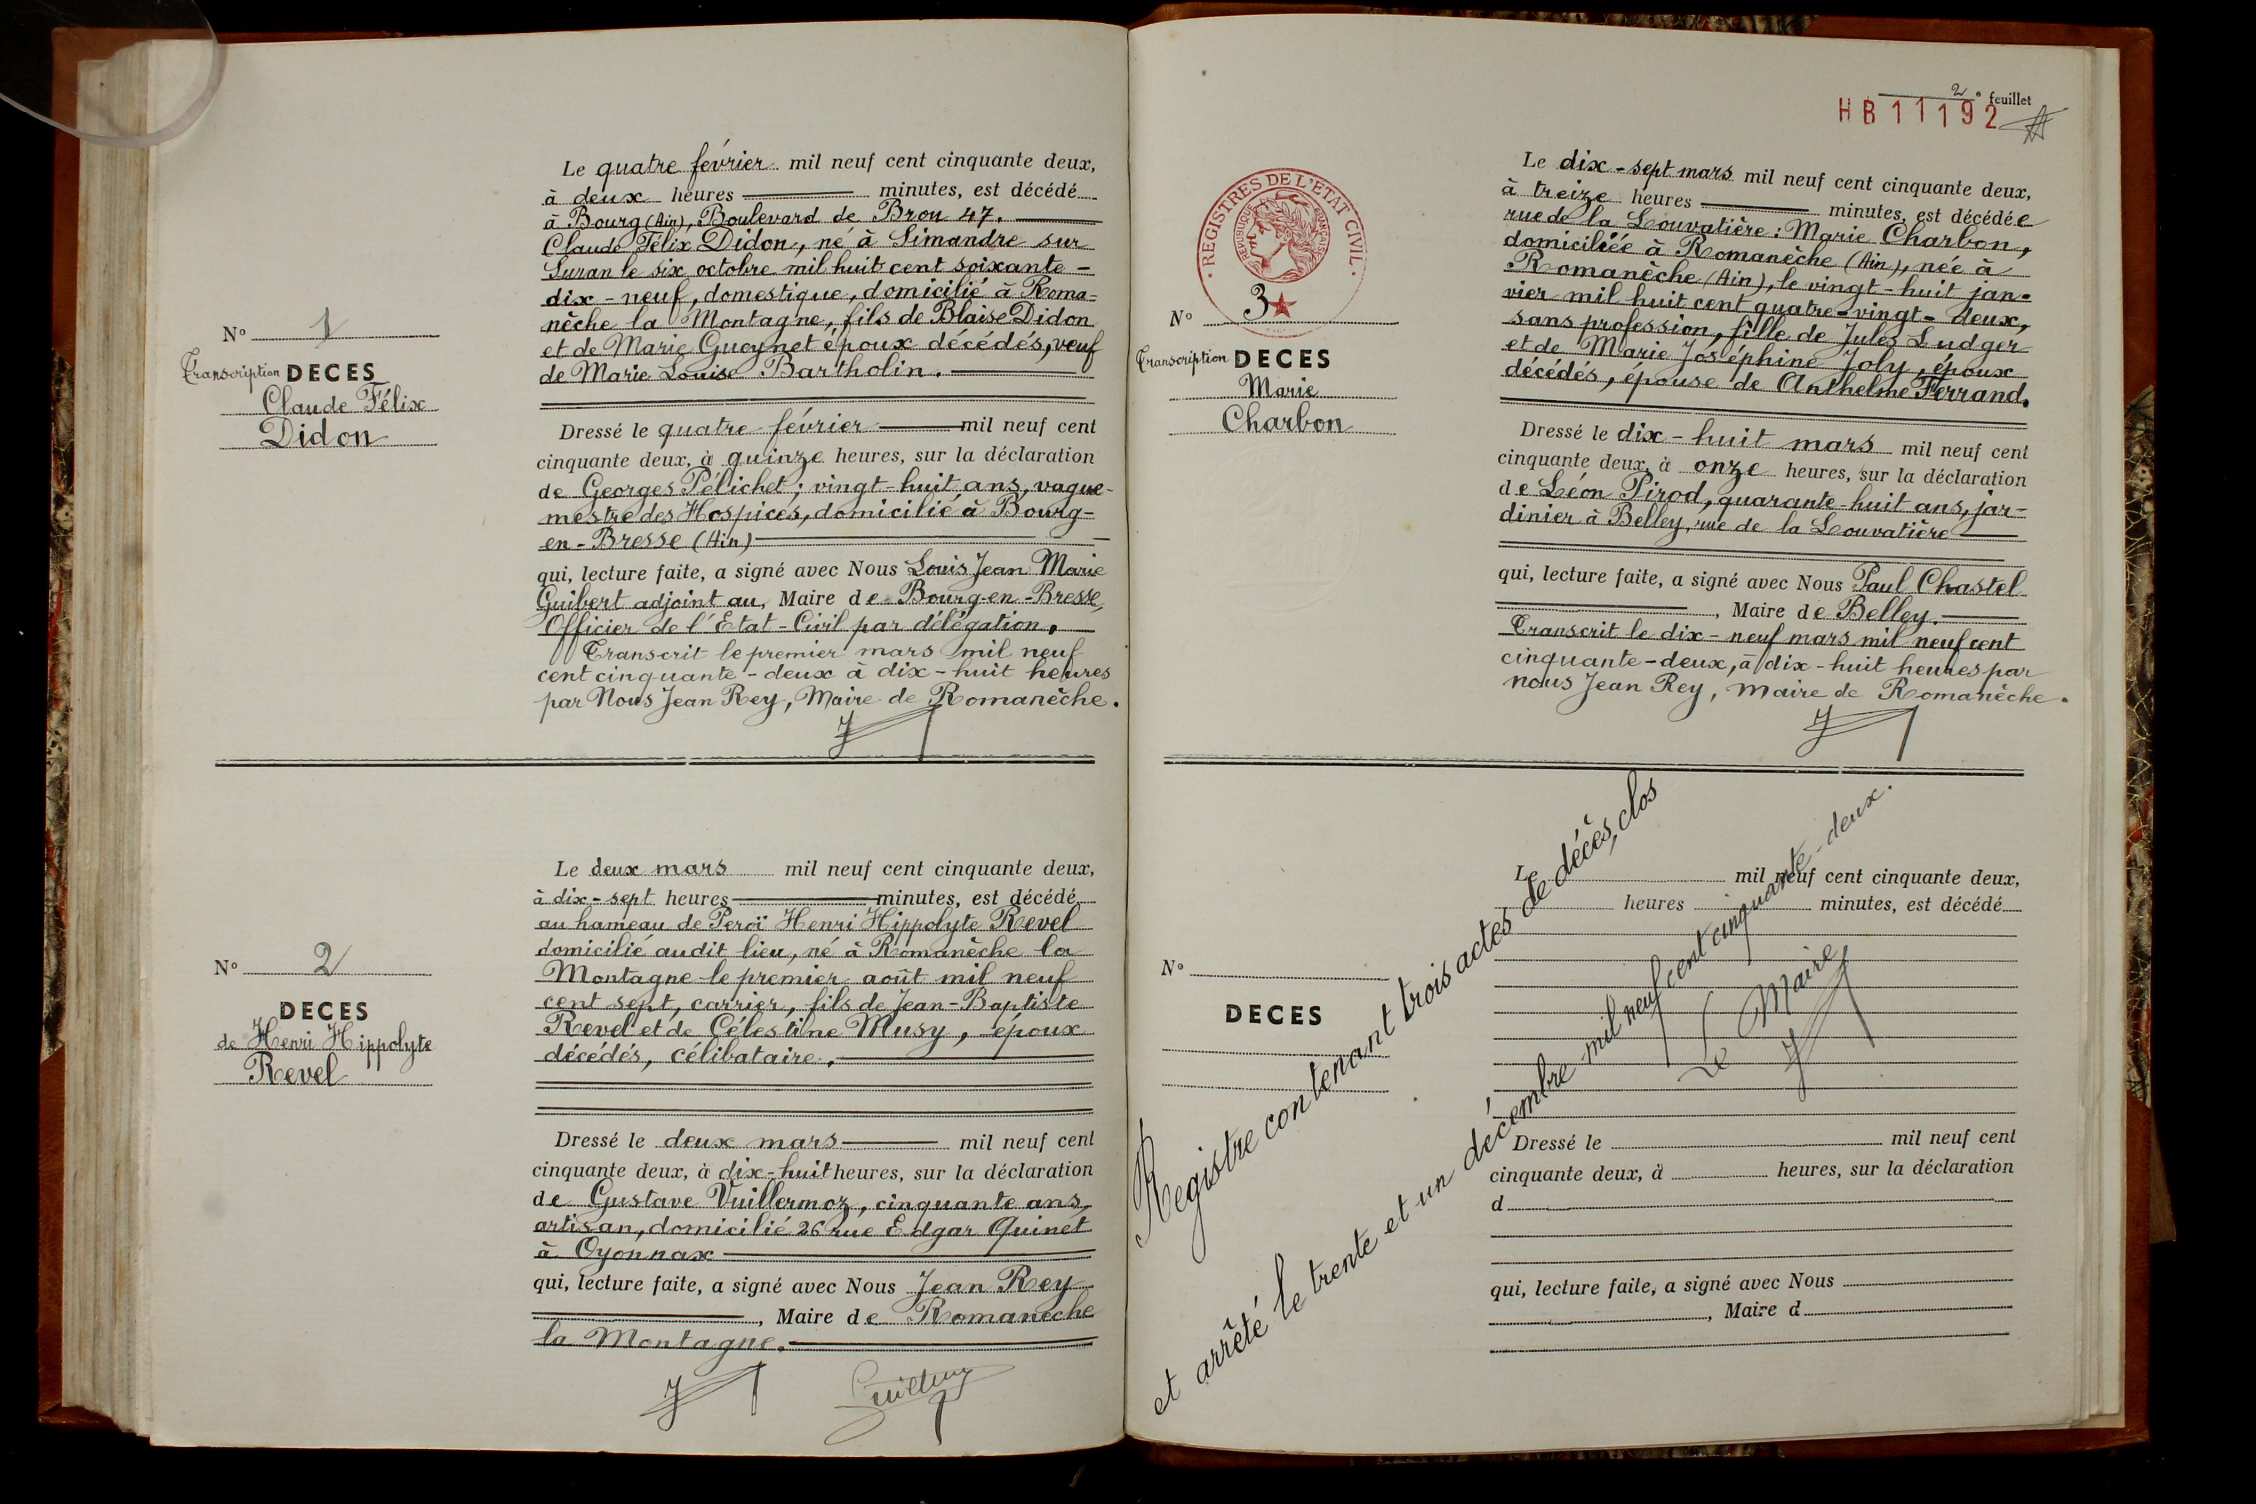 Le quatre février mil neuf cent cinquante deux,
à deux heures minutes, est décédé
à Bourg (Ain), Boulevard de Brou 47.
Claude Félix Didon, né à Simandre sur
Suran le six octobre mil huit cent soixante-
dix-neuf, domestique, domicilié à Roma=
nèche la Montagne, fils de Blaise Didon
et de Marie Gueynet époux décédés, veuf
de Marie Louise Bartholin.
N° 1
Transcription DECES
Claude Félix
Didon
Dressé le quatre février mil neuf cent
cinquante deux, à quinze heures, sur la déclaration
de Georges Pélichet; vingt-huit ans, vague-
mestre des Hospices, domicilié à Bourg-
en-Bresse (Ain)
qui, lecture faite, a signé avec Nous Louis Jean Marie
Guibert adjoint au, Maire de Bourg-en-Bresse,
Officier de l'Etat-Civil par délégation.
Transcrit le premier mars mil neuf
cent cinquante-deux à dix-huit heures
par Nous Jean Rey, Maire de Romanèche.
Le deux mars mil neuf cent cinquante deux,
à dix-sept heures minutes, est décédé
au hameau de Peroï Henri Hippolyte Revel
domicilié audit lieu, né à Romanèche la
Montagne le premier août mil neuf
cent sept, carrier, fils de Jean-Baptiste
Revel et de Célestine Musy, époux
décédés, célibataire.
N° 2
DECES
de Henri Hippolyte
Revel
Dressé le deux mars mil neuf cent
cinquante deux, à dix-huit heures, sur la déclaration
de Gustave Vuillermoz, cinquante ans,
artisan, domicilié 26 rue Edgar Quinet
à Oyonnax
qui, lecture faite, a signé avec Nous Jean Rey
, Maire de Romanèche
la Montagne.
2e feuillet
HB11192
Le dix-sept mars mil neuf cent cinquante deux,
à treize heures minutes, est décédée
rue de la Louvatière: Marie Charbon,
domiciliée à Romanèche (Ain), née à
Romanèche (Ain), le vingt-huit jan-
vier mil huit cent quatre-vingt-deux,
sans profession, fille de Jules Ludger
et de Marie Joséphine Joly, époux
décédés, épouse de Anthelme Ferrand.
REGISTRES DE L'ETAT CIVIL
REPUBLIQUE FRANÇAISE
N° 3
Transcription DECES
Marie
Charbon
Dressé le dix-huit mars mil neuf cent
cinquante deux, à onze heures, sur la déclaration
de Léon Pirod, quarante-huit ans, jar-
dinier à Belley, rue de la Louvatière
qui, lecture faite, a signé avec Nous Paul Chastel
, Maire de Belley.
Transcrit le dix-neuf mars mil neuf cent
cinquante-deux, à dix-huit heures par
nous Jean Rey, maire de Romanèche.
Le mil neuf cent cinquante deux,
heures minutes, est décédé
N°
DECES
Dressé le mil neuf cent
cinquante deux, à heures, sur la déclaration
d
qui, lecture faite, a signé avec Nous
, Maire d
Registre contenant trois actes de décès, clos
et arrêté le trente et un décembre mil neuf cent cinquante-deux.
Le Maire